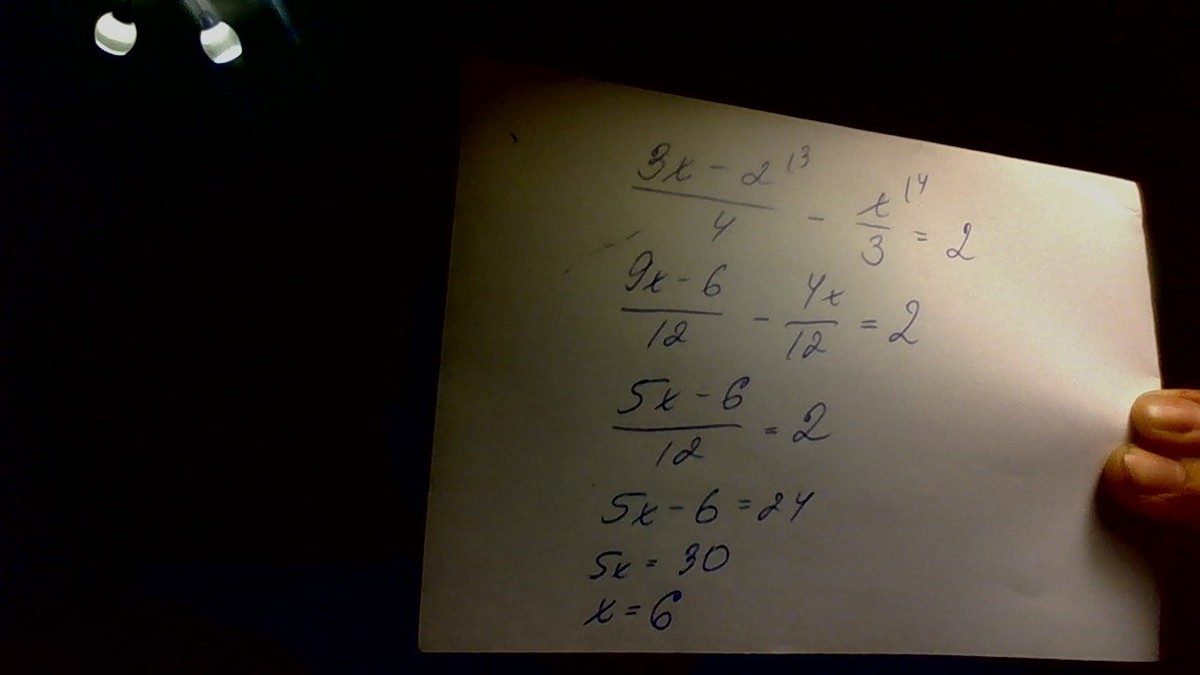 (3x - 2)/4 ⁽³ - x/3 ⁽⁴ = 2
(9x - 6)/12 - 4x/12 = 2
(5x - 6)/12 = 2
5x - 6 = 24
5x = 30
x = 6